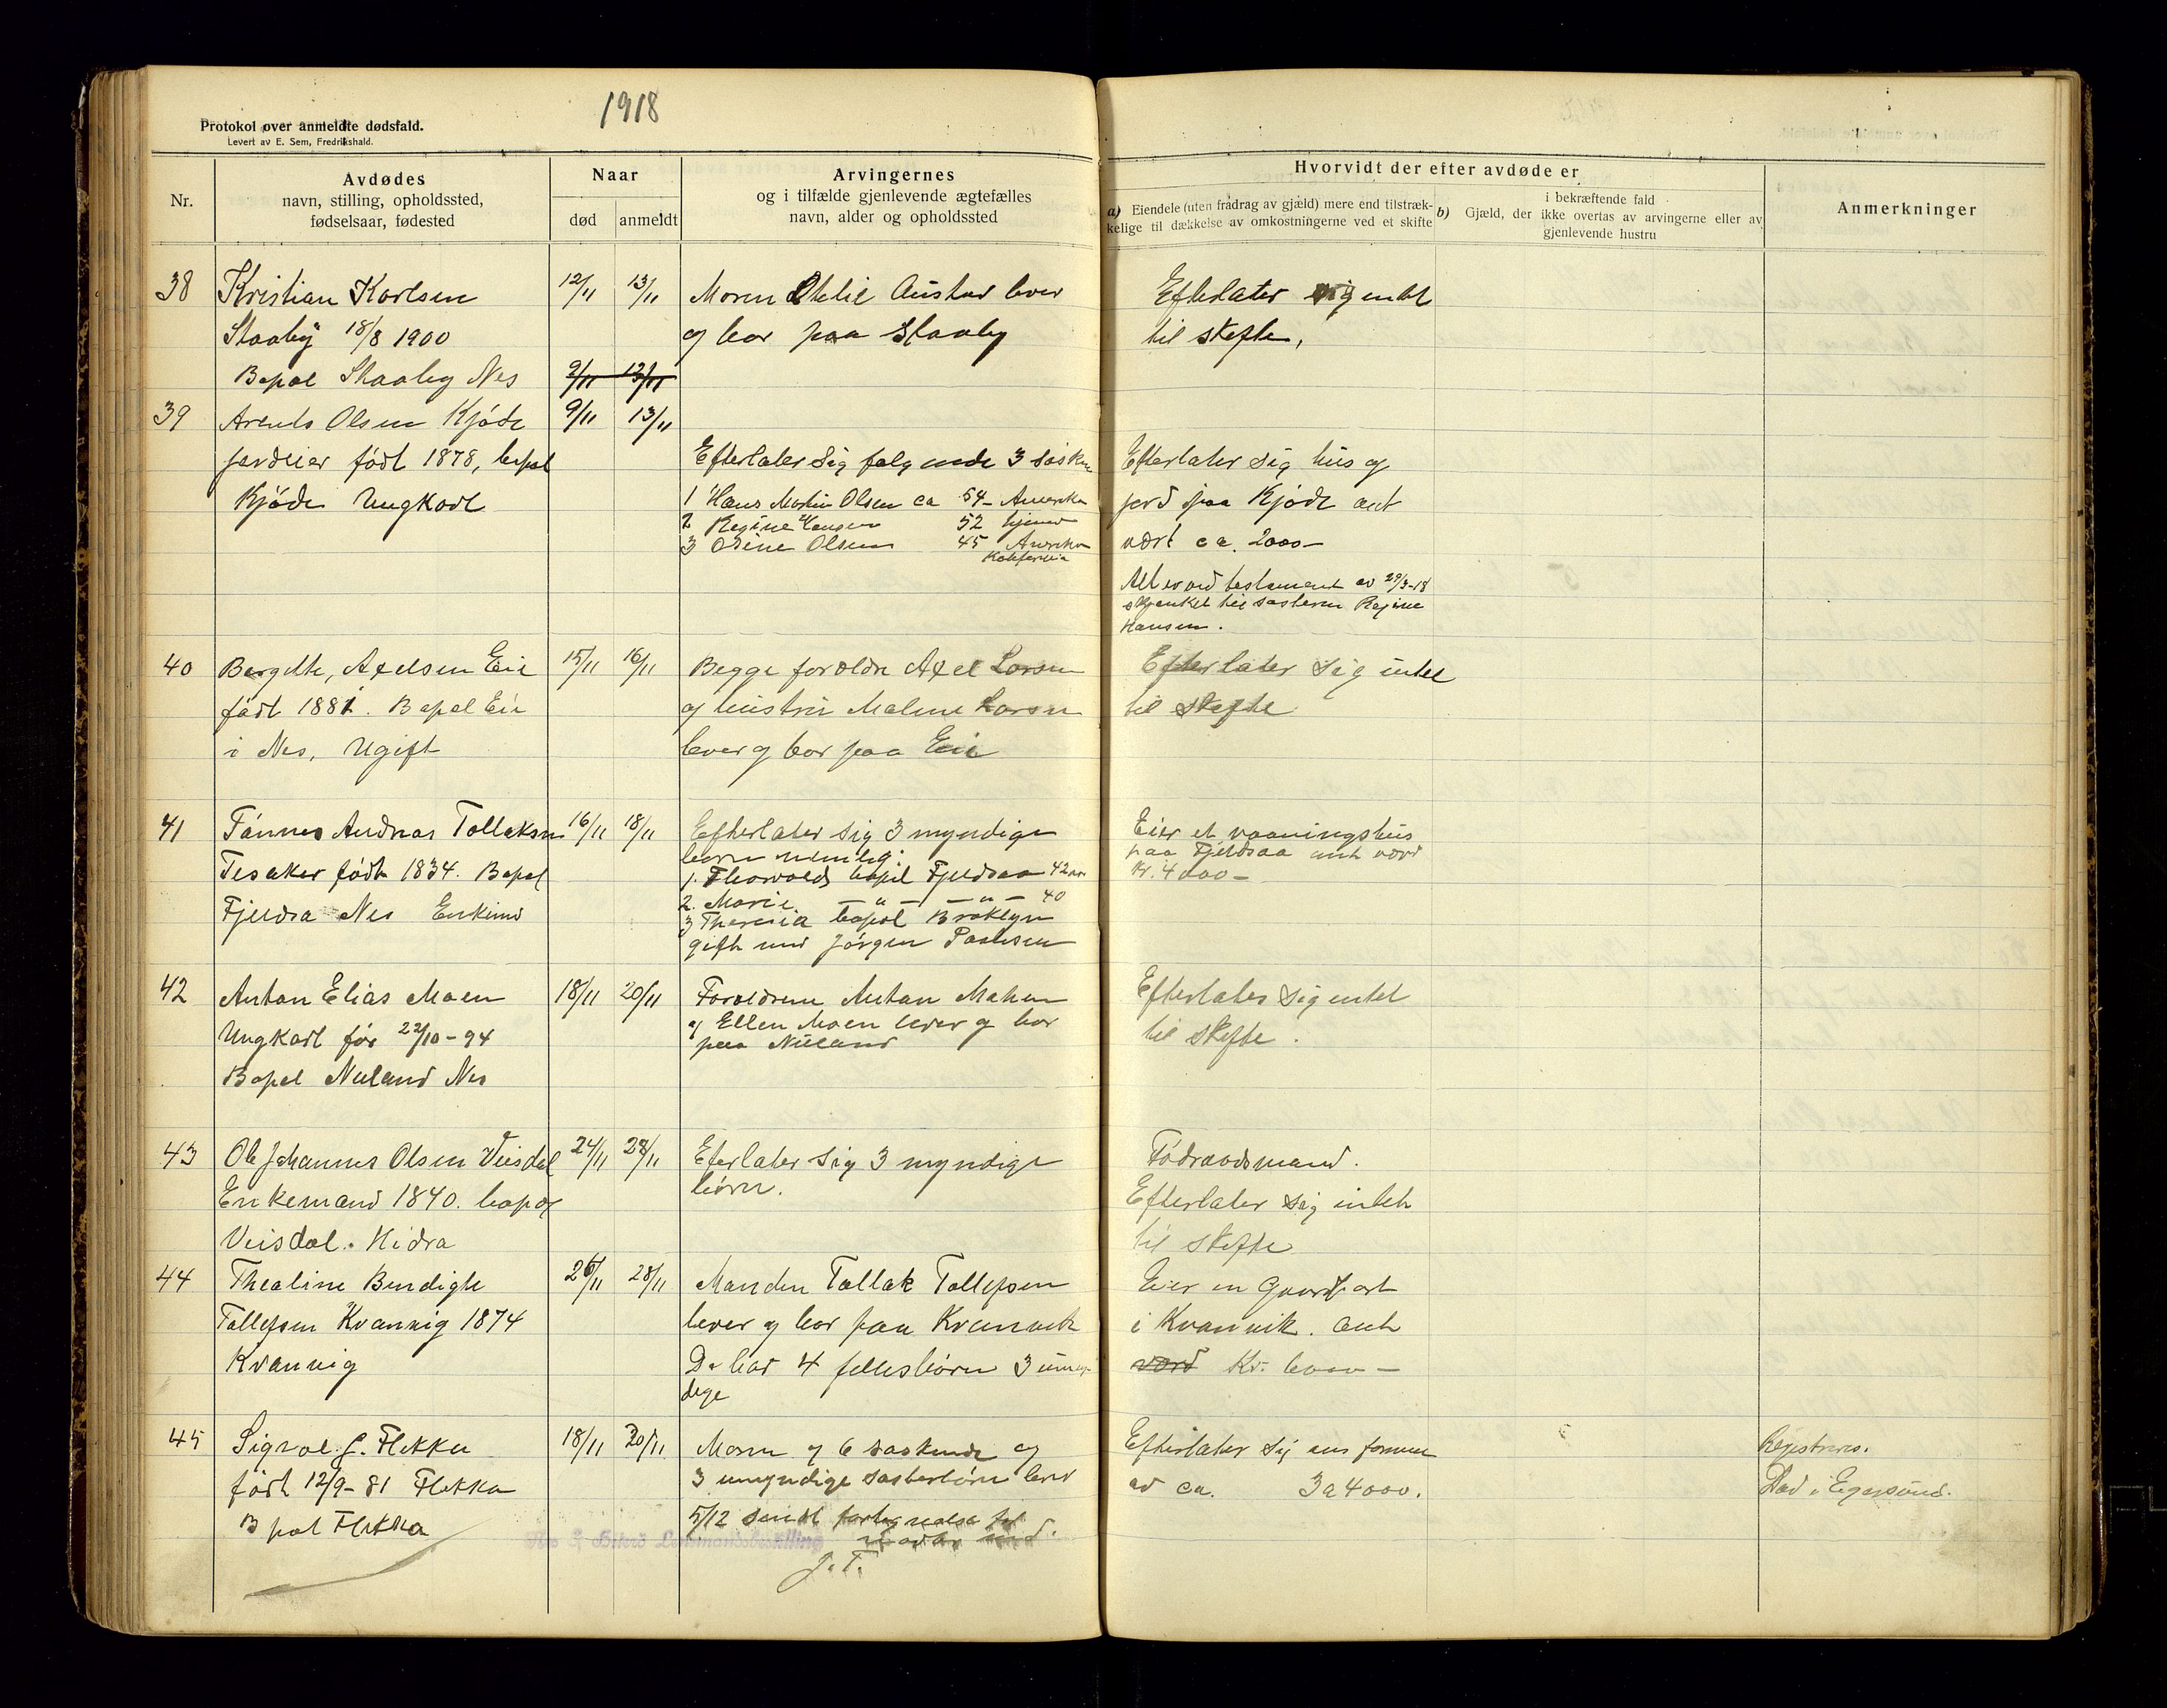 1918
Protokol over anmeldte dødsfald.
Levert av E. Sem, Fredrikshald.
Nr.
Avdødes
navn, stilling, opholdssted,
fødselsaar, fødested
Naar
død
anmeldt
Arvingernes
og i tilfælde gjenlevende ægtefælles
navn, alder og opholdssted
Hvorvidt der efter avdøde er
a) Eiendele (uten fradrag av gjæld) mere end tilstræk-
kelige til dækkelse av omkostningerne ved et skifte
i bekræftende fald
b) Gjæld, der ikke overtas av arvingerne eller av
gjenlevende hustru
Anmerkninger
38 Kristian Karlsen 12/11 13/11 Moren Austad lever Efterlater sig intet
Staaby 18/8 1900 og bor paa Staaby til skifte,
Bopæl Staaby Nes 9/11 13/11
39 Arends Olsen Kjøde 9/11 13/11
jordeier født 1878, bopæl Efterlater sig følgende 3 søsken Efterlater sig hus og
Kjøde Ungkarl 1 Hans Martin Olsen ca 54 - Amerika jord paa Kjøde ant
2 Regine Hansen 52 hjemme
3 Osine Olsen 45 Amerika værd ca. 2000-
Kalifornia
Alt er ved testament av 29/3-18
skjænket til søsteren Regine
Hansen.
40 Bergitte, Axelsen Eie 15/11 16/11 Begge forældre Axel Larsen Efterlater sig intet
født 1881. Bopæl Eie og hustru Malene Larsen til skifte
i Nes, Ugift lever og bor paa Eie
41 Tønnes Andreas Tollaksen 16/11 18/11 Efterlater sig 3 myndige Eier et vaaningshus
børn nemlig: paa Fjeldsaa ant værd
Tesaker født 1834. Bopæl 1. Thorvald bopæl Fjeldsaa 42 aar Kr. 4000-
2. Marie - " - - " - 40
Fjeldsa Nes Enkemd 3 Theresia bopæl Broklyn
gift med Jørgen Paulsen
42 Anton Elias Moen 18/11 20/11 Forældrene Anton Moen Efterlater sig intet
Ungkarl fød 22/10-94 og Ellen Moen lever og bor til skifte.
paa Nuland
Bopæl Nuland Nes
43 Ole Johannes Olsen Veisdal 24/11 28/11 Eferlater sig 3 myndige Födraadsmand.
Enkemand 1840. bopæl børn. Efterlater sig intet
Veisdal. Hidra til skifte
44 Thealine Bendigte 26/11 28/11 Manden Tollak Tollefsen Eier en Gaardpart
Tollefsen Kvanvig 1874 lever og bor paa Kvanvik i Kvanvik. Ant
Kvanvig De har 4 fellesbörn 3 umyn- værd Kr. 6000-
dige
45 Sigval J. Flikka 18/11 20/11 Moren og 6 søskende og Efterlater sig en formue Registreres.
født 12/9-81 Flikka 3 umyndige søsterbörn lever av ca. 3 a 4000. Død i Egersund.
Bopæl Flikka 5/12 sendt fortegnelse til
Nes & Hiterø Lensmandsbestilling
J. T.